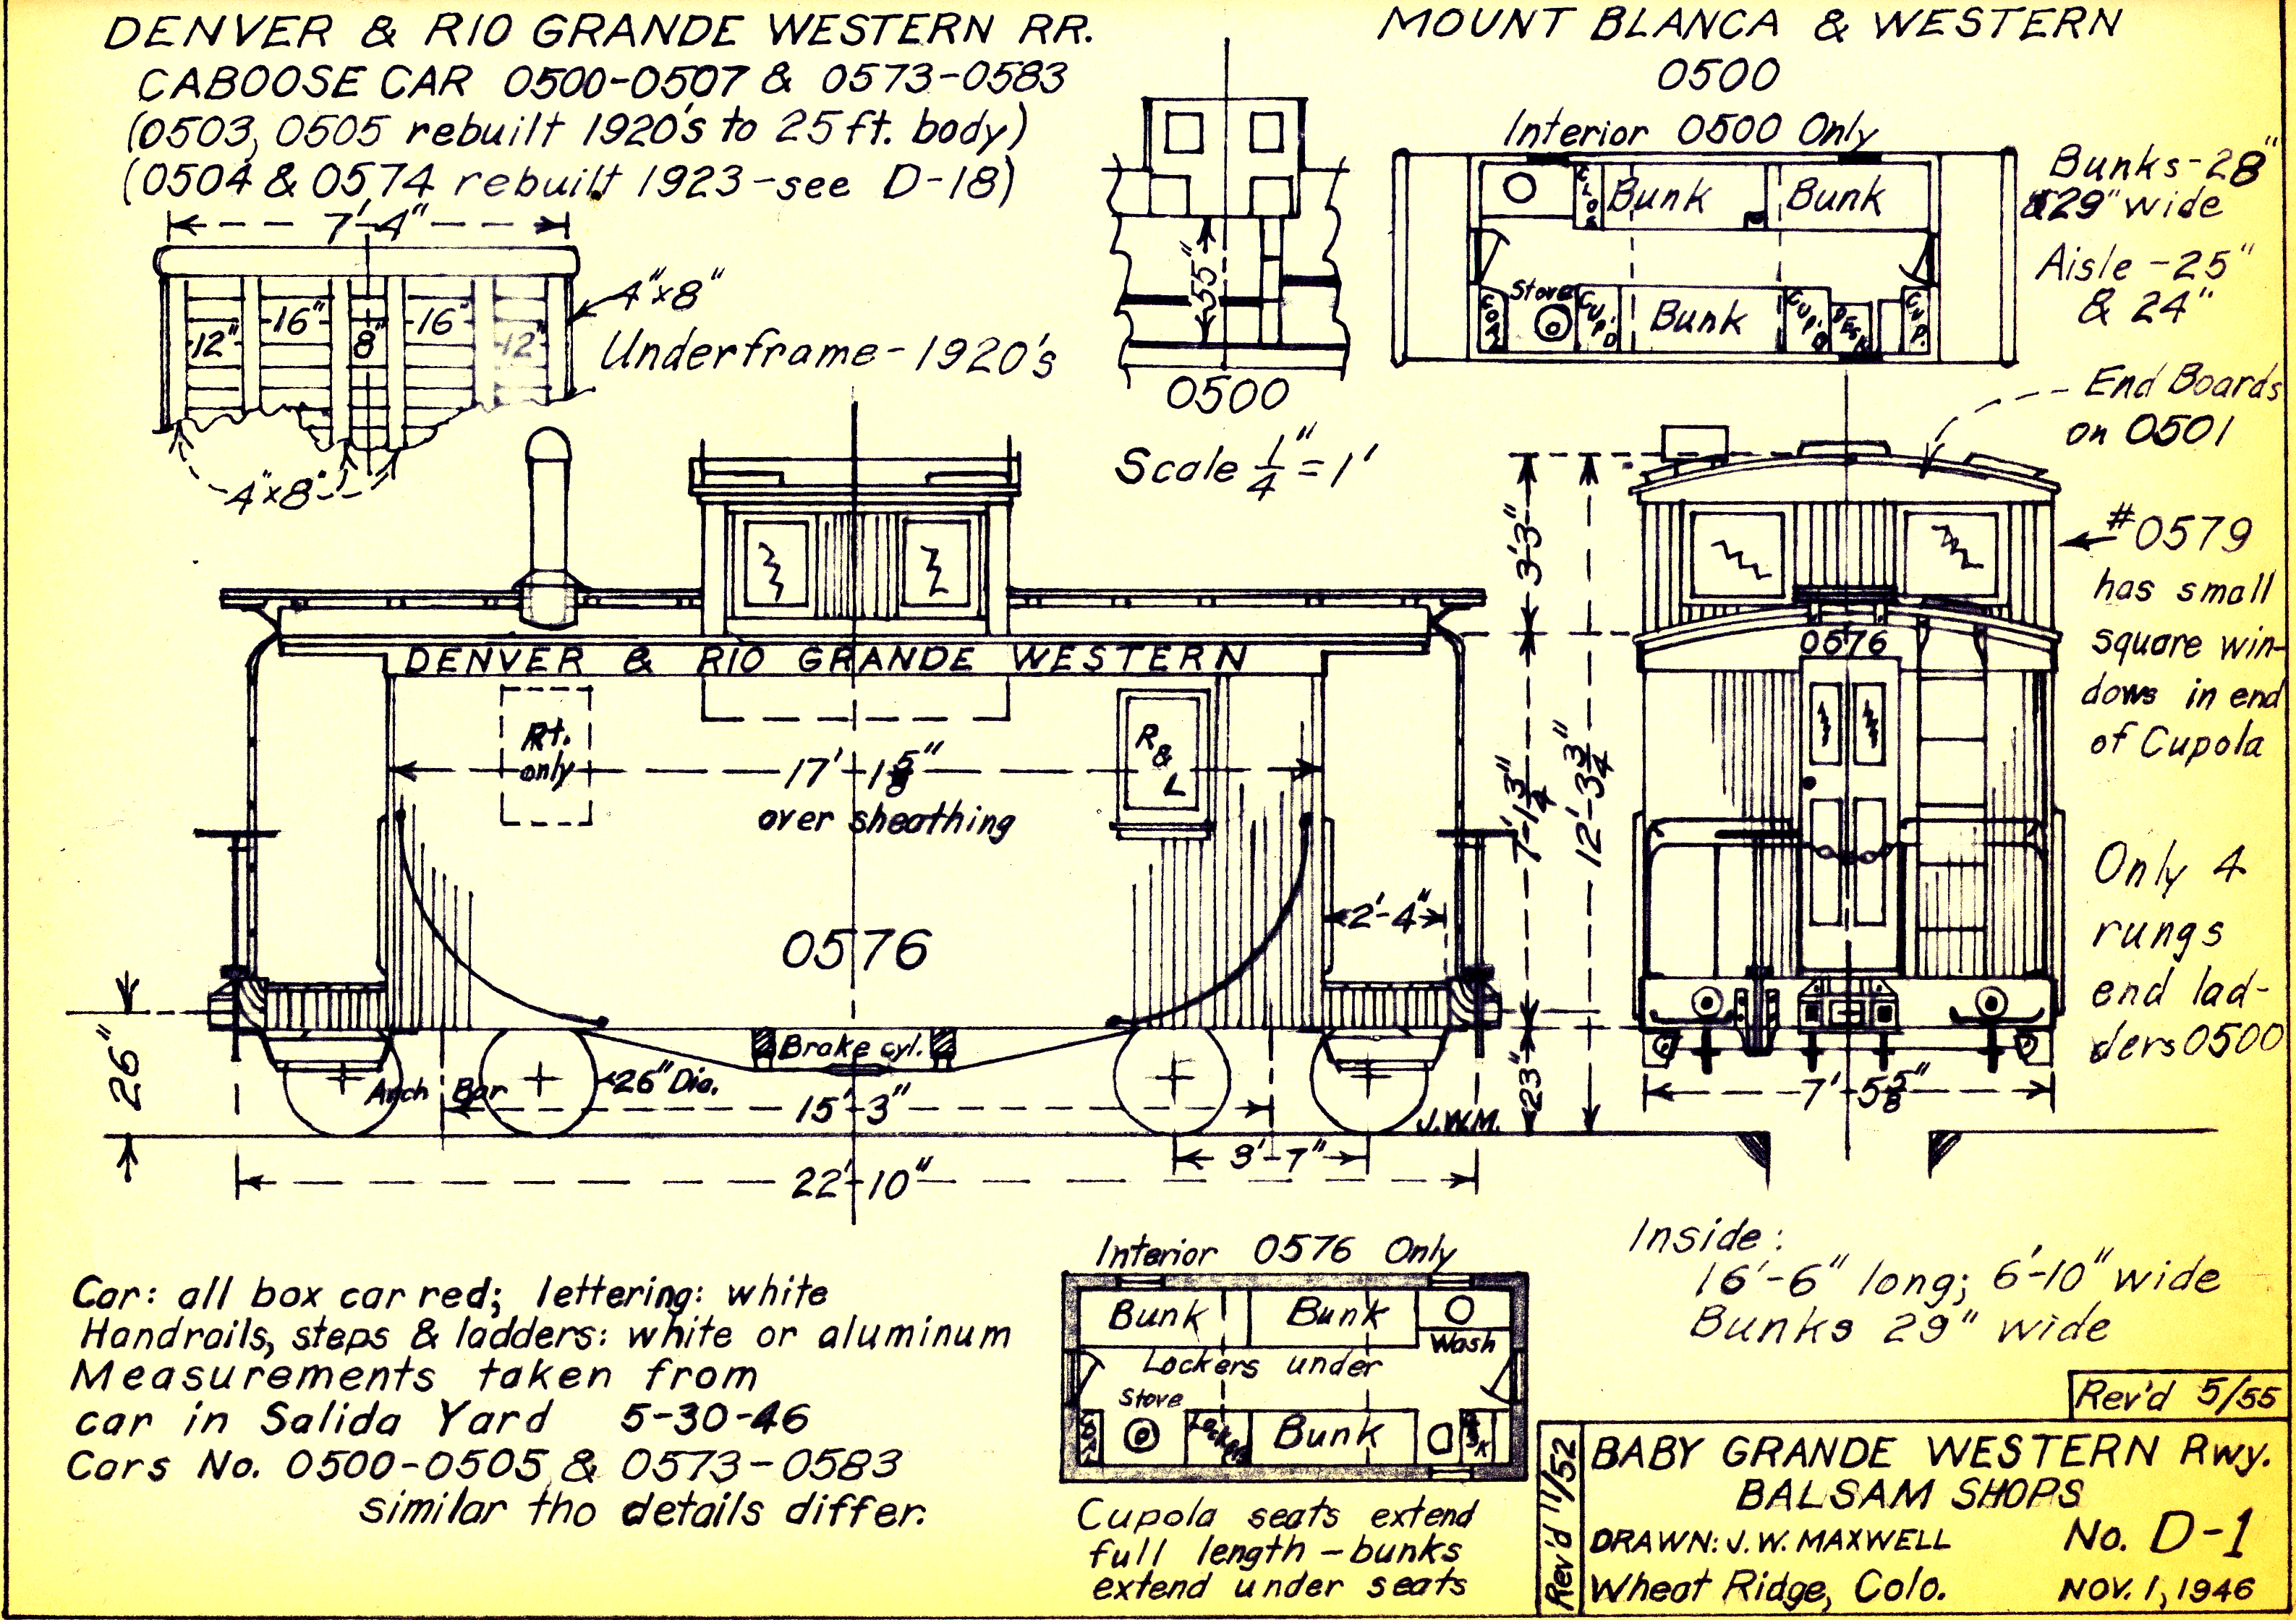 DENVER & RIO GRANDE WESTERN RR.
CABOOSE CAR 0500-0507 & 0573-0583
(0503, 0505 rebuilt 1920's to 25 ft. body)
(0504 & 0574 rebuilt 1923 - see D-18)
MOUNT BLANCA & WESTERN
0500
Interior 0500 Only
Bunks - 28"
& 29" wide
Aisle - 25"
& 24"
CLOS
Bunk
Bunk
COAL
Stove
CUP'D
Bunk
CUP'D
DESK
CUP.
7'-4"
12"
16"
8"
16"
12"
4"x8"
Underframe - 1920's
4"x8"
55"
0500
Scale 1/4" = 1'
End Boards
on 0501
#0579
has small
square win-
dows in end
of Cupola
Only 4
rungs
end lad-
ders 0500
DENVER & RIO GRANDE WESTERN
Rt.
only
R
&
L
17'-1 5/8"
over sheathing
0576
2'-4"
26"
Arch Bar
26" Dia.
Brake cyl.
15'-3"
J.W.M.
3'-7"
22'-10"
3'3"
7'-1 3/4"
12'-3 3/4"
23"
0576
7'-5 5/8"
Inside:
16'-6" long; 6'-10" wide
Bunks 29" wide
Car: all box car red; lettering: white
Handrails, steps & ladders: white or aluminum
Measurements taken from
car in Salida Yard 5-30-46
Cars No. 0500-0505 & 0573-0583
similar tho details differ.
Interior 0576 Only
Bunk
Bunk
Wash
Lockers under
Stove
COAL
Lockers
Bunk
DESK
Cupola seats extend
full length - bunks
extend under seats
Rev'd 5/55
Rev'd 11/52
BABY GRANDE WESTERN Rwy.
BALSAM SHOPS
DRAWN: J. W. MAXWELL No. D-1
Wheat Ridge, Colo. NOV. 1, 1946